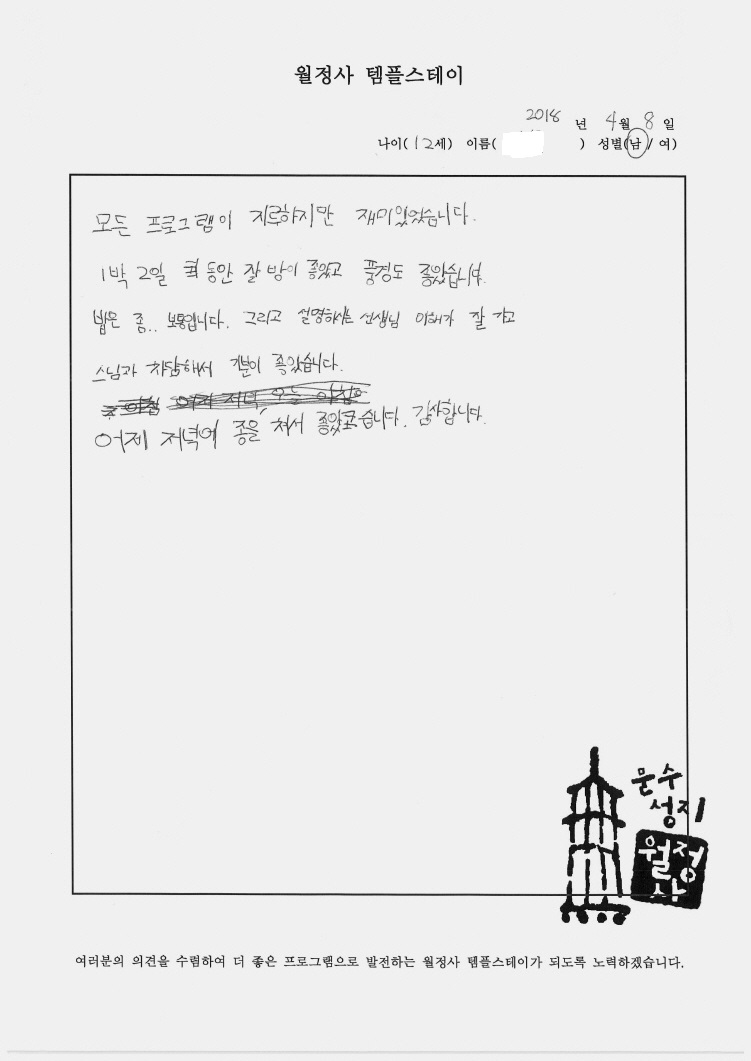 월정사 템플스테이
2018 년 4월 8 일
나이(12세) 이름( ) 성별(남/ 여)
모든 프로그램이 지루하지만 재미있었습니다.
1박 2일 동안 잘 방이 좋았고 풍경도 좋았습니다.
밥은 좀.. 보통입니다. 그리고 설명하시는 선생님 이해가 잘 가고
스님과 차담해서 기분이 좋았습니다.
아침 어제 저녁, 오늘 아침에
어제 저녁에 종을 쳐서 좋았습니다. 감사합니다.
문수
성지
월정
사
여러분의 의견을 수렴하여 더 좋은 프로그램으로 발전하는 월정사 템플스테이가 되도록 노력하겠습니다.